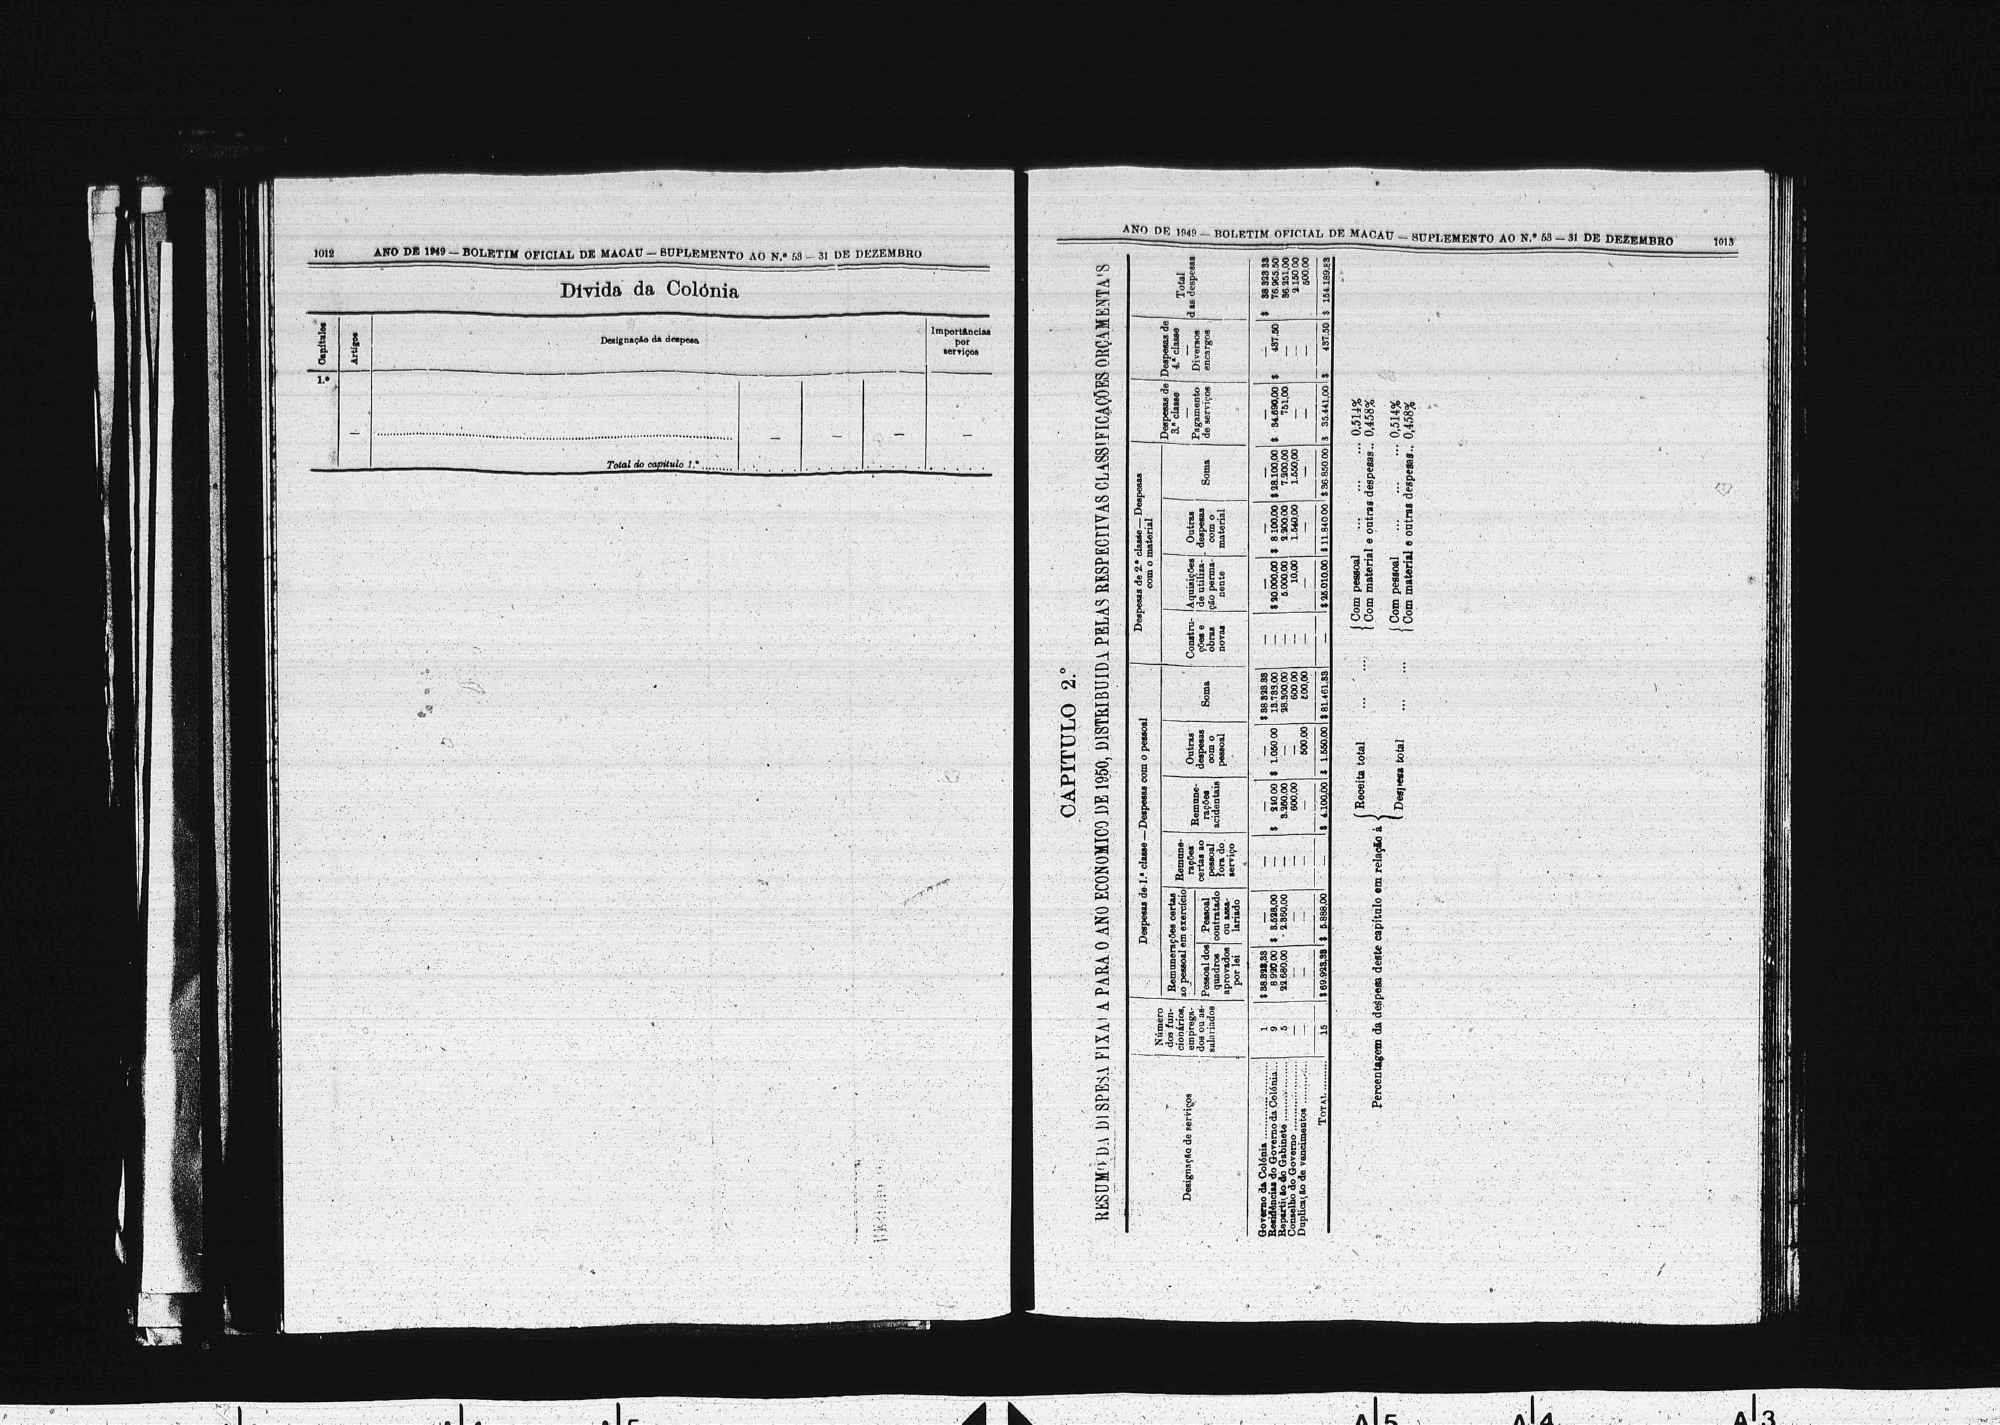 1012 ANO DE 1949 — BOLETIM OFICIAL DE MACAU — SUPLEMENTO AO N.º 53 — 31 DE DEZEMBRO
Divida da Colónia
Capítulos Artigos Designação da despesa Importâncias por serviços
1.º
— — — — —
Total do capítulo 1.º
ANO DE 1949 — BOLETIM OFICIAL DE MACAU — SUPLEMENTO AO N.º 53 — 31 DE DEZEMBRO 1013
CAPITULO 2.º
RESUMO DA DISPESA FIXA! A PARA O ANO ECONOMICO DE 1950, DISTRIBUIDA PELAS RESPECTIVAS CLASSIFICAÇÕES ORÇAMENTA'S
Designação de serviços
Número dos funcionários, empregados ou assalariados
Despesas de 1.ª classe — Despesas com o pessoal
Remunerações certas ao pessoal em exercício
Pessoal dos quadros aprovados por lei
Pessoal contratado ou assalariado
Remunerações certas ao pessoal fora do serviço
Remunerações acidentais
Outras despesas com o pessoal
Soma
Despesas de 2.ª classe — Despesas com o material
Construções e obras novas
Aquisições de utilização permanente
Outras despesas com o material
Soma
Despesas de 3.ª classe — Pagamento de serviços
Despesas de 4.ª classe — Diversos encargos
Total das despesas
Governo da Colónia 1 $ 38.323,33 — — — — $ 38.323,33 — — — — — — $ 38.323,33
Residências do Governo da Colónia 9 8.920,00 $ 3.528,00 — $ 240,00 $ 1.050,00 13.738,00 — $ 20.000,00 $ 8.100,00 $ 28.100,00 $ 34.690,00 $ 437,50 76.965,50
Repartição do Gabinete 5 22.680,00 2.360,00 — 3.260,00 — 28.300,00 — 5.000,00 2.200,00 7.200,00 751,00 — 36.251,00
Conselho do Governo — — — — 600,00 — 600,00 — 10,00 1.540,00 1.550,00 — — 2.150,00
Duplicação de vencimentos — — — — — 500,00 500,00 — — — — — — 500,00
TOTAL 15 $ 69.923,33 $ 5.888,00 — $ 4.100,00 $ 1.550,00 $ 81.461,33 — $ 25.010,00 $ 11.840,00 $ 36.850,00 $ 35.441,00 $ 437,50 $ 154.189,83
Percentagem da despesa deste capítulo em relação à
Receita total ... ... Com pessoal ... ... ... 0,514%
Com material e outras despesas .. 0,458%
Despesa total ... ... Com pessoal ... ... ... 0,514%
Com material e outras despesas .. 0,458%
A 5 A 4 A 3